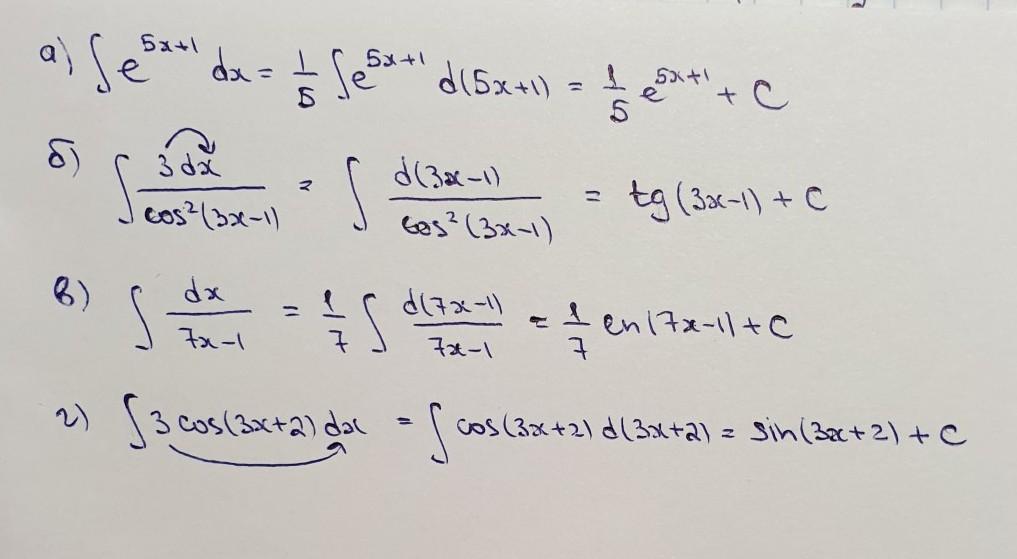 а) ∫ e^(5x+1) dx = 1/5 ∫ e^(5x+1) d(5x+1) = 1/5 e^(5x+1) + C
б) ∫ 3dx / cos²(3x-1) = ∫ d(3x-1) / cos²(3x-1) = tg(3x-1) + C
в) ∫ dx / 7x-1 = 1/7 ∫ d(7x-1) / 7x-1 = 1/7 ln|7x-1| + C
г) ∫ 3 cos(3x+2) dx = ∫ cos(3x+2) d(3x+2) = sin(3x+2) + C